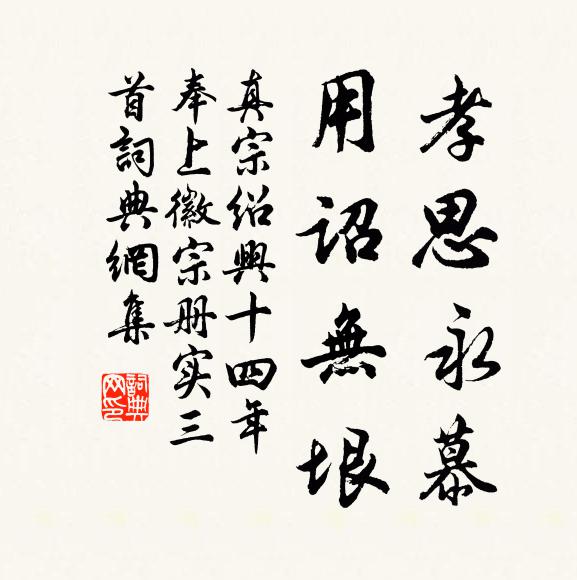 孝思永慕
用詔無垠
真宗绍興十四年
奉上徽宗册实三
首詞典網集
詞典网印